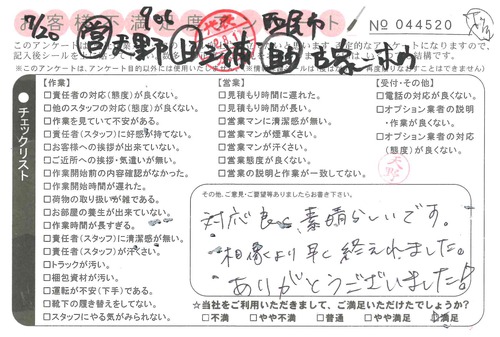 お客様不満足度アンケート
No 044520
7/20
【作業】
□責任者の対応(態度)が良くない。
□他のスタッフの対応(態度)が良くない。
□作業を見ていて不安がある。
□責任者(スタッフ)に好感が持てない。
□お客様への挨拶が出来ていない。
□ご近所への挨拶・気遣いが無い。
□作業開始前の内容確認がなかった。
□作業開始時間が遅れた。
□荷物の取り扱いが雑である。
□お部屋の養生が出来ていない。
□作業時間が長すぎる。
□責任者(スタッフ)に清潔感が無い。
□責任者(スタッフ)が汗くさい。
□トラックが汚い。
□梱包資材が汚い。
□運転が不安(下手)である。
□靴下の履き替えをしてない。
□スタッフにやる気がみられない。
【営業】
□見積もり時間に遅れた。
□見積もり時間が長い。
□営業マンに清潔感が無い。
□営業マンが煙草くさい。
□営業マンが汗くさい。
□営業態度が良くない。
□営業の説明と作業が一致してない。
【受付・その他】
□電話の対応が良くない。
□オプション業者の説明
・作業が良くない。
□オプション業者の対応
(態度)が良くない。
●チェックリスト
その他、ご意見・ご要望等ありましたらお書き下さい。
対応良く、素晴らしいです。
想像より早く終えれました。
ありがとうございました!
☆当社をご利用いただきまして、ご満足いただけたでしょうか?
□不満 □やや不満 □普通 □やや満足 ☑満足